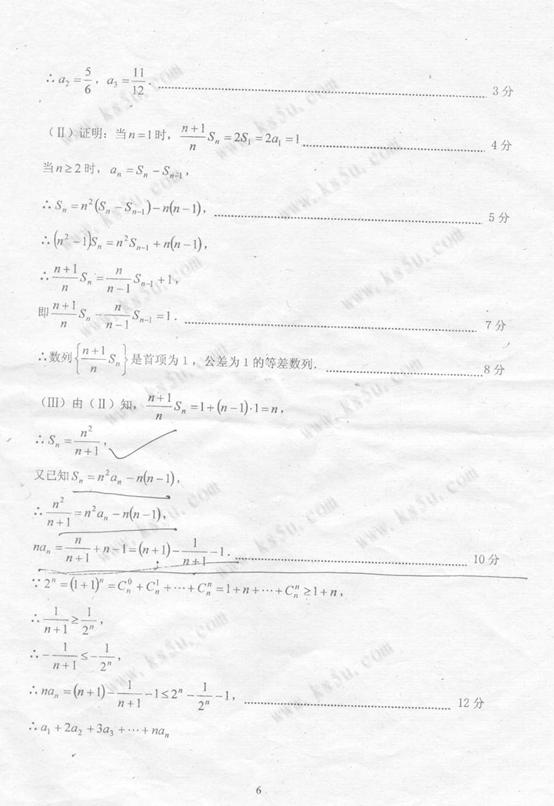 ∴a₂=5/6，a₃=11/12．……3分
(Ⅱ)证明：当n=1时，(n+1)/n Sₙ=2S₁=2a₁=1……4分
当n≥2时，aₙ=Sₙ−Sₙ₋₁，
∴Sₙ=n²(Sₙ−Sₙ₋₁)−n(n−1)，……5分
∴(n²−1)Sₙ=n²Sₙ₋₁+n(n−1)，
∴(n+1)/n Sₙ=n/(n−1) Sₙ₋₁+1，
即(n+1)/n Sₙ−n/(n−1) Sₙ₋₁=1．……7分
∴数列{(n+1)/n Sₙ}是首项为1，公差为1的等差数列．……8分
(Ⅲ)由(Ⅱ)知，(n+1)/n Sₙ=1+(n−1)·1=n，
∴Sₙ=n²/(n+1)，
又已知Sₙ=n²aₙ−n(n−1)，
∴n²/(n+1)=n²aₙ−n(n−1)，
naₙ=n/(n+1)+n−1=(n+1)−1/(n+1)−1．……10分
∵2ⁿ=(1+1)ⁿ=Cₙ⁰+Cₙ¹+⋯+Cₙⁿ=1+n+⋯+Cₙⁿ≥1+n，
∴1/(n+1)≥1/2ⁿ，
∴−1/(n+1)≤−1/2ⁿ，
∴naₙ=(n+1)−1/(n+1)−1≤2ⁿ−1/2ⁿ−1，……12分
∴a₁+2a₂+3a₃+⋯+naₙ
6
www.ks5u.com